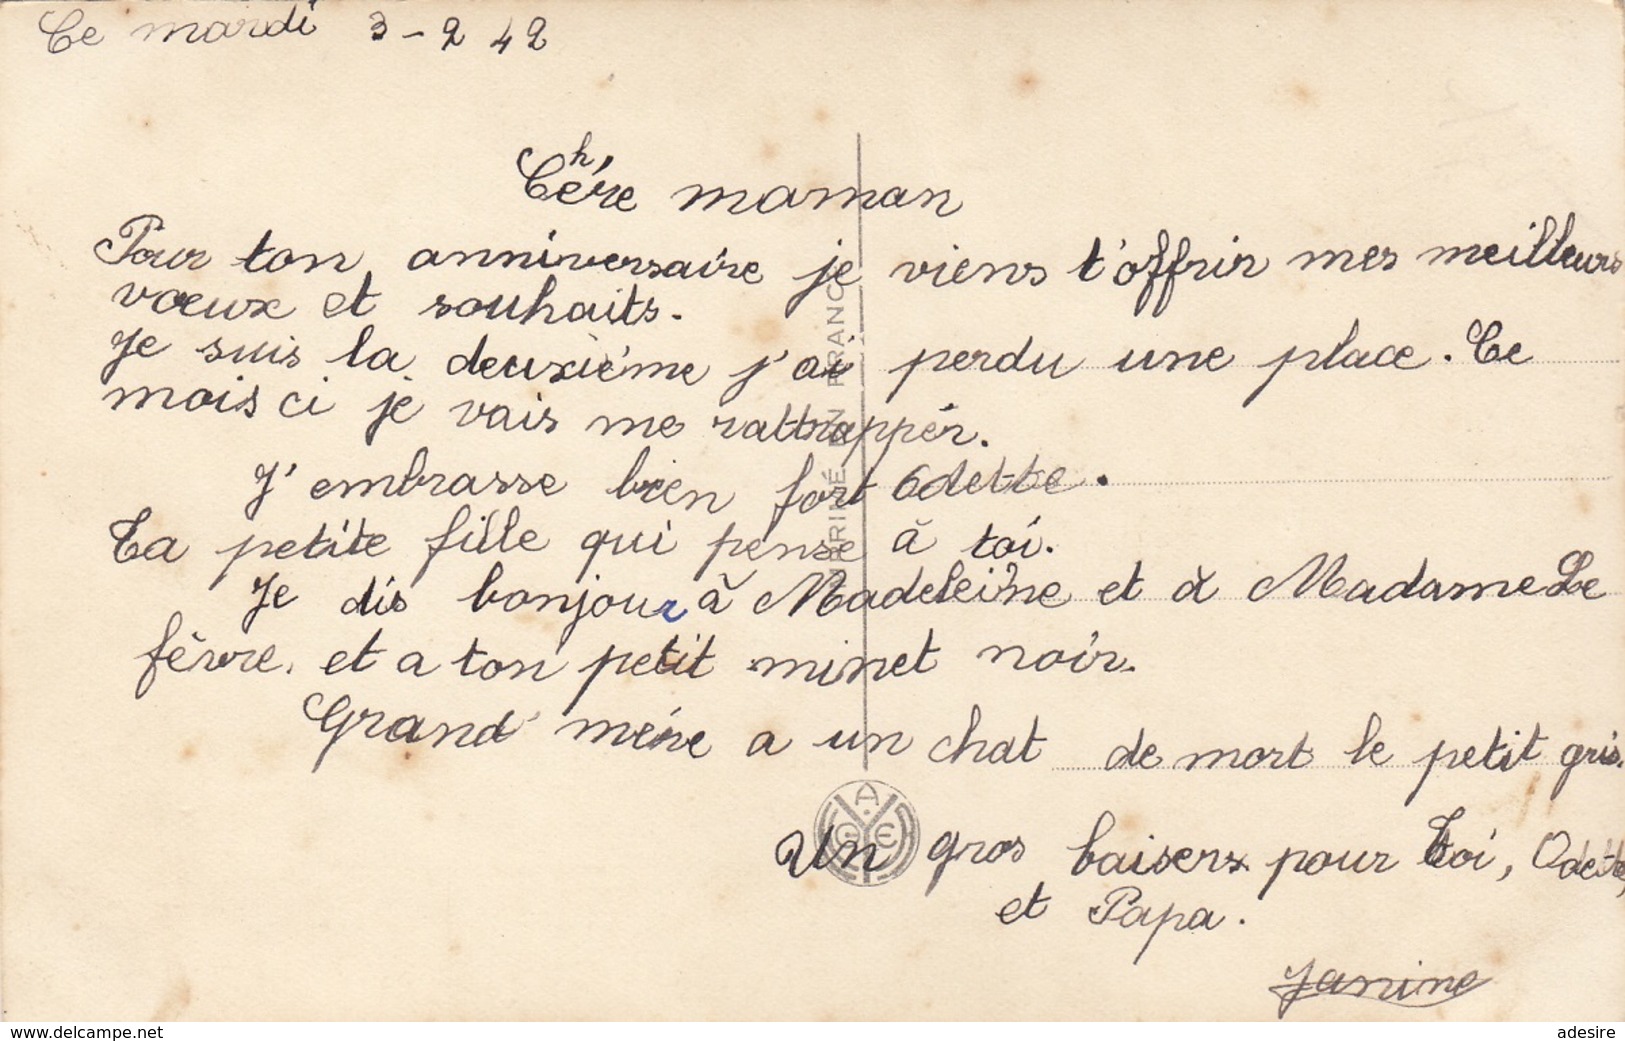 Ce mardi 3-2 42
Chére maman
Pour ton anniversaire je viens t'offrir mes meilleurs
voeux et souhaits.
Je suis la deuxiéme j'ai perdu une place. Ce
mois ci je vais me rattrappér.
J'embrasse bien fort Odette.
Ta petite fille qui pense à toi.
Je dis bonjour à Madeleine et à Madame Le
fèvre. et a ton petit minet noir.
Grand' mére a un chat de mort le petit gris.
Un gros baisers pour toi, Odette,
et Papa.
Janine
IMPRIMÉ EN FRANCE
A C E
www.delcampe.net
adesire